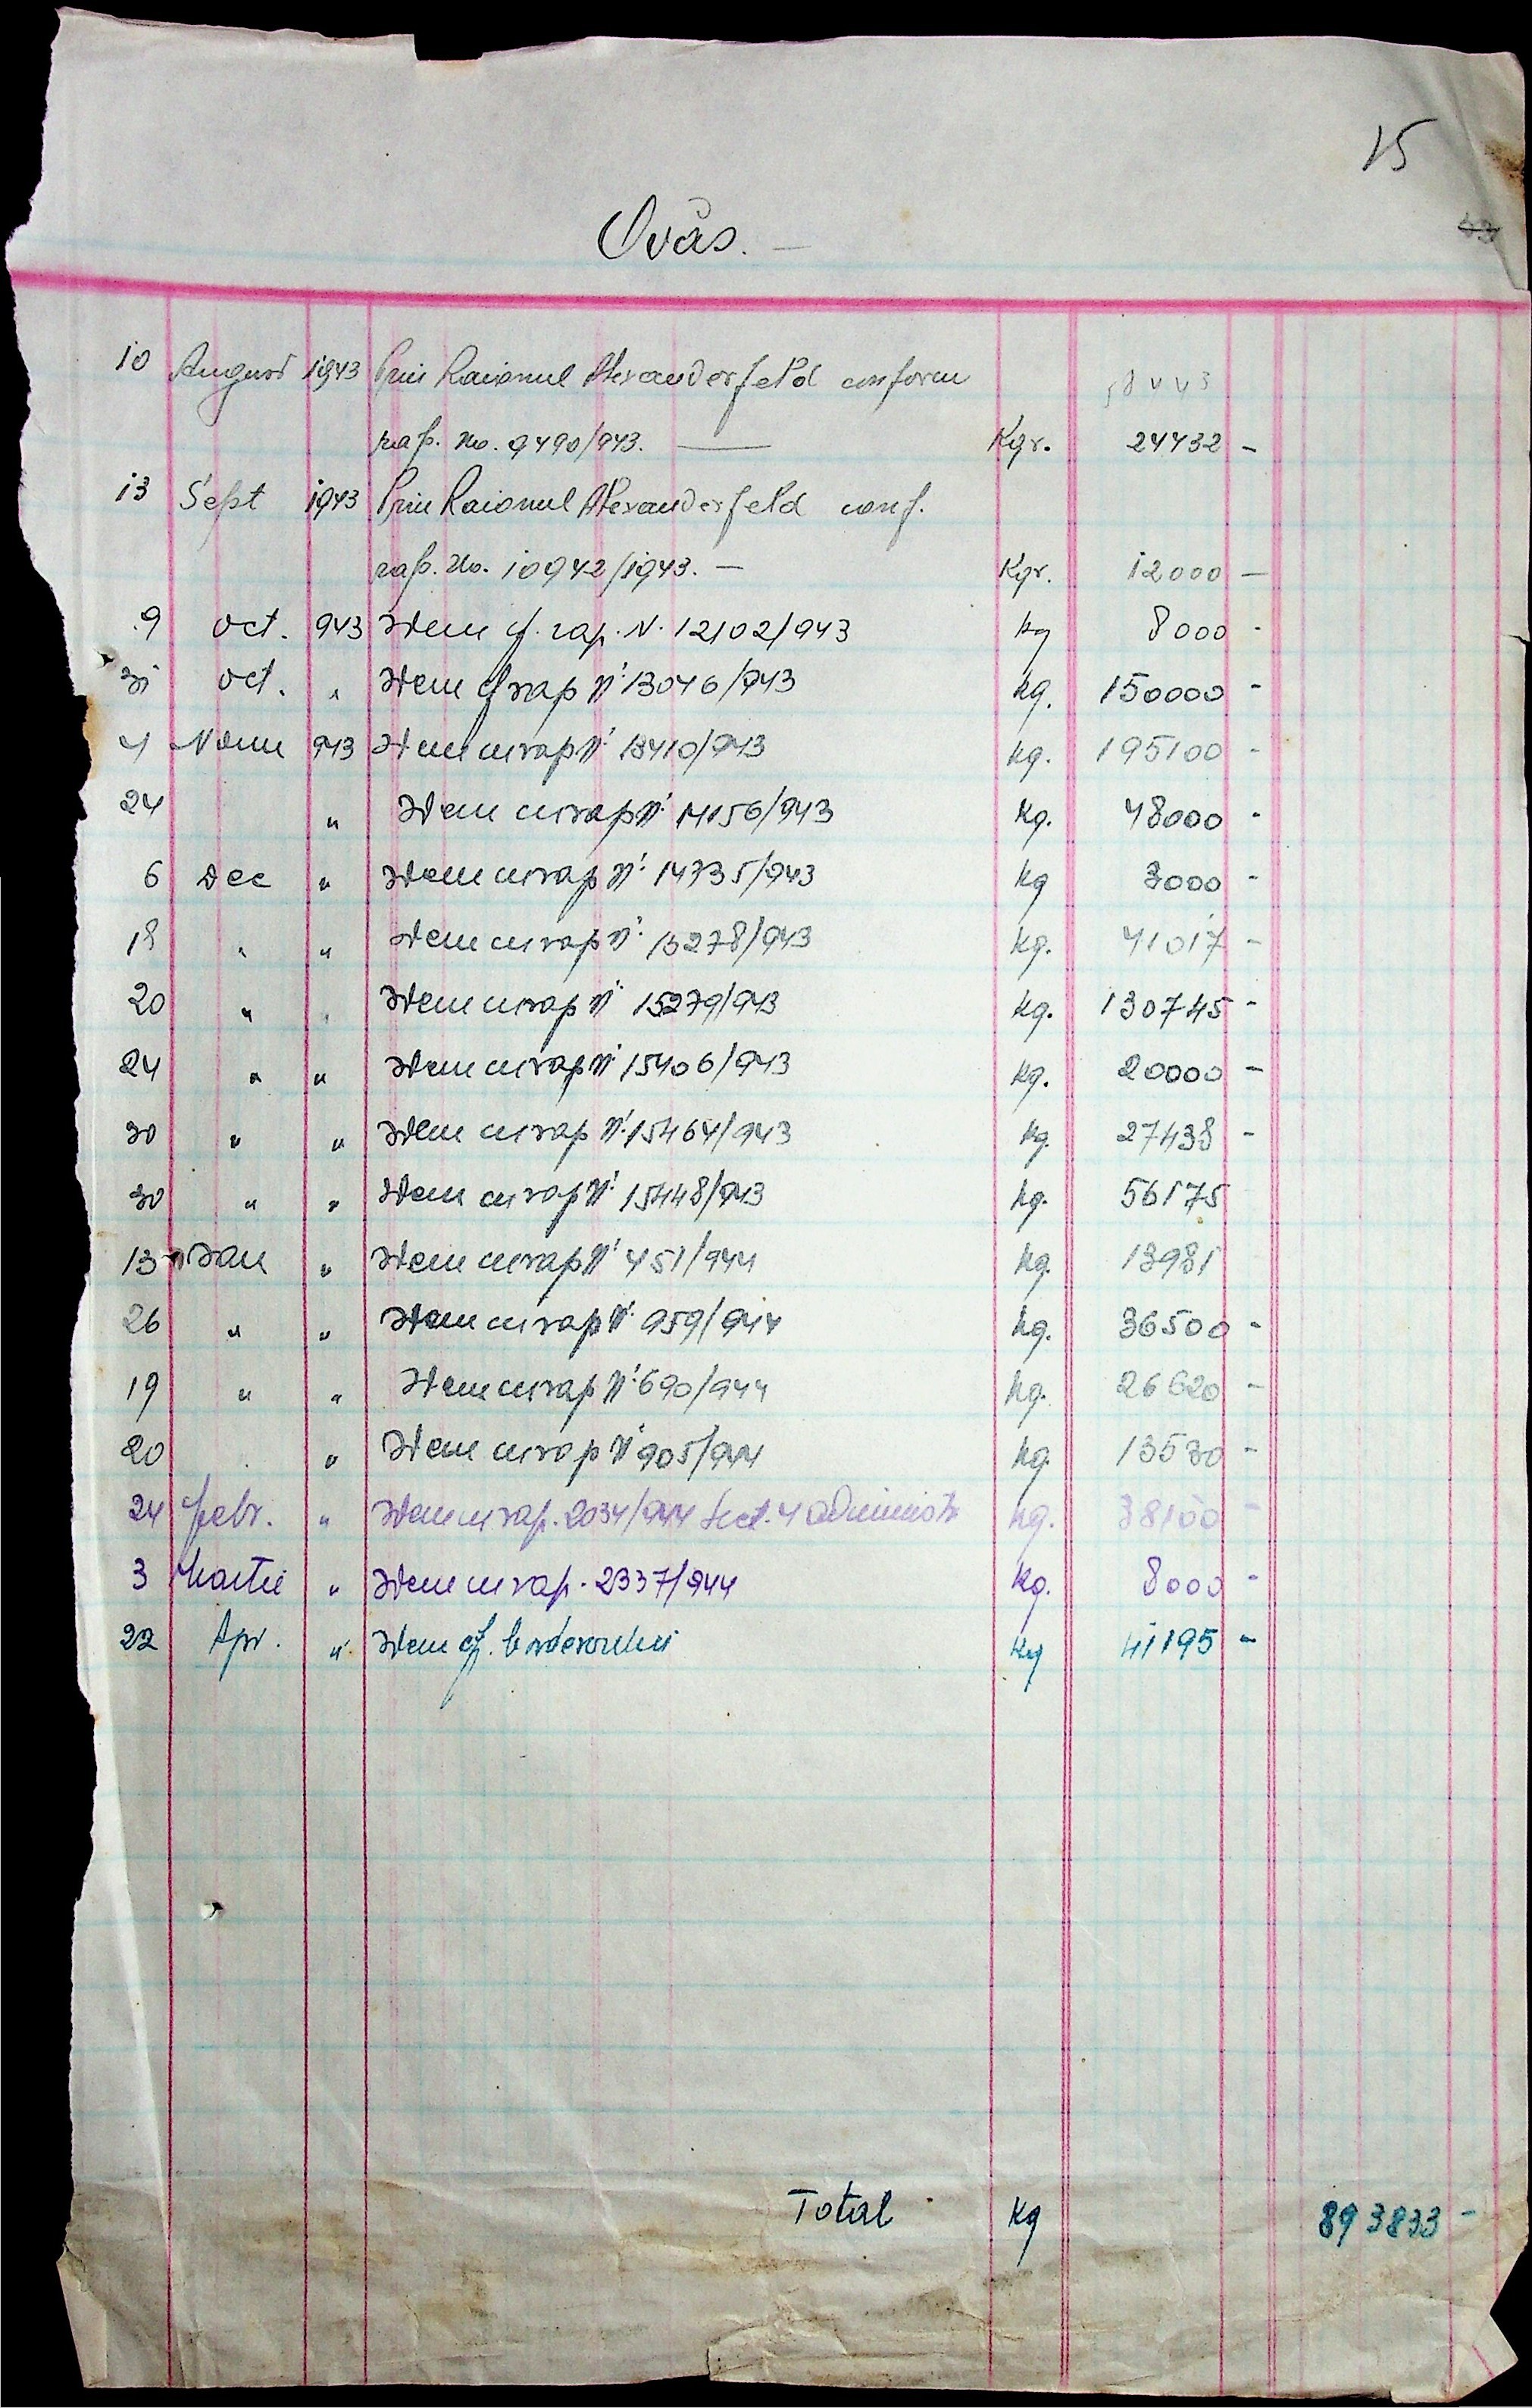 15
Ovăs. —
10 August 1943 Prin Raionul Alexanderfeld conform
58443
rap. No. 9490/943. — Kgr. 24432 -
13 Sept 1943 Prin Raionul Alexanderfeld conf.
rap. No. 10942/1943. — Kgr. 12000 —
9 oct. 943 Idem cf. rap. N. 12102/943 kg 8000 -
31 oct. " Idem cf rap Nº 13046/943 kg. 150000 -
4 Noem 943 Idem cu rap Nº 13410/943 kg. 195100 -
24 " Idem cu rap Nº 14156/943 kg. 48000 -
6 Dec " Idem cu rap Nº 14735/943 kg 3000 -
18 " " Idem cu rap Nº 15278/943 kg. 41017 -
20 " " Idem cu rap Nº 15279/943 kg. 130745 -
24 " " Idem cu rap Nº 15406/943 kg. 20000 -
30 " " Idem cu rap Nº 15464/943 kg. 27438 -
30 " " Idem cu rap Nº 15448/943 kg. 56175
13 Ian " Idem cu rap Nº 451/944 kg. 13981
26 " " Idem cu rap Nº 959/944 kg. 36500 -
19 " " Idem cu rap Nº 690/944 kg. 26620 -
20 " Idem cu rap Nº 905/944 kg. 13530 -
24 Febr. " Idem cu rap. 2034/944 Sect. 4 administr kg. 38100 -
3 Martie " Idem cu rap. 2337/944 kg. 8000 -
22 Apr. " Idem cf. borderoului kg 41195 -
Total kg 893833 -